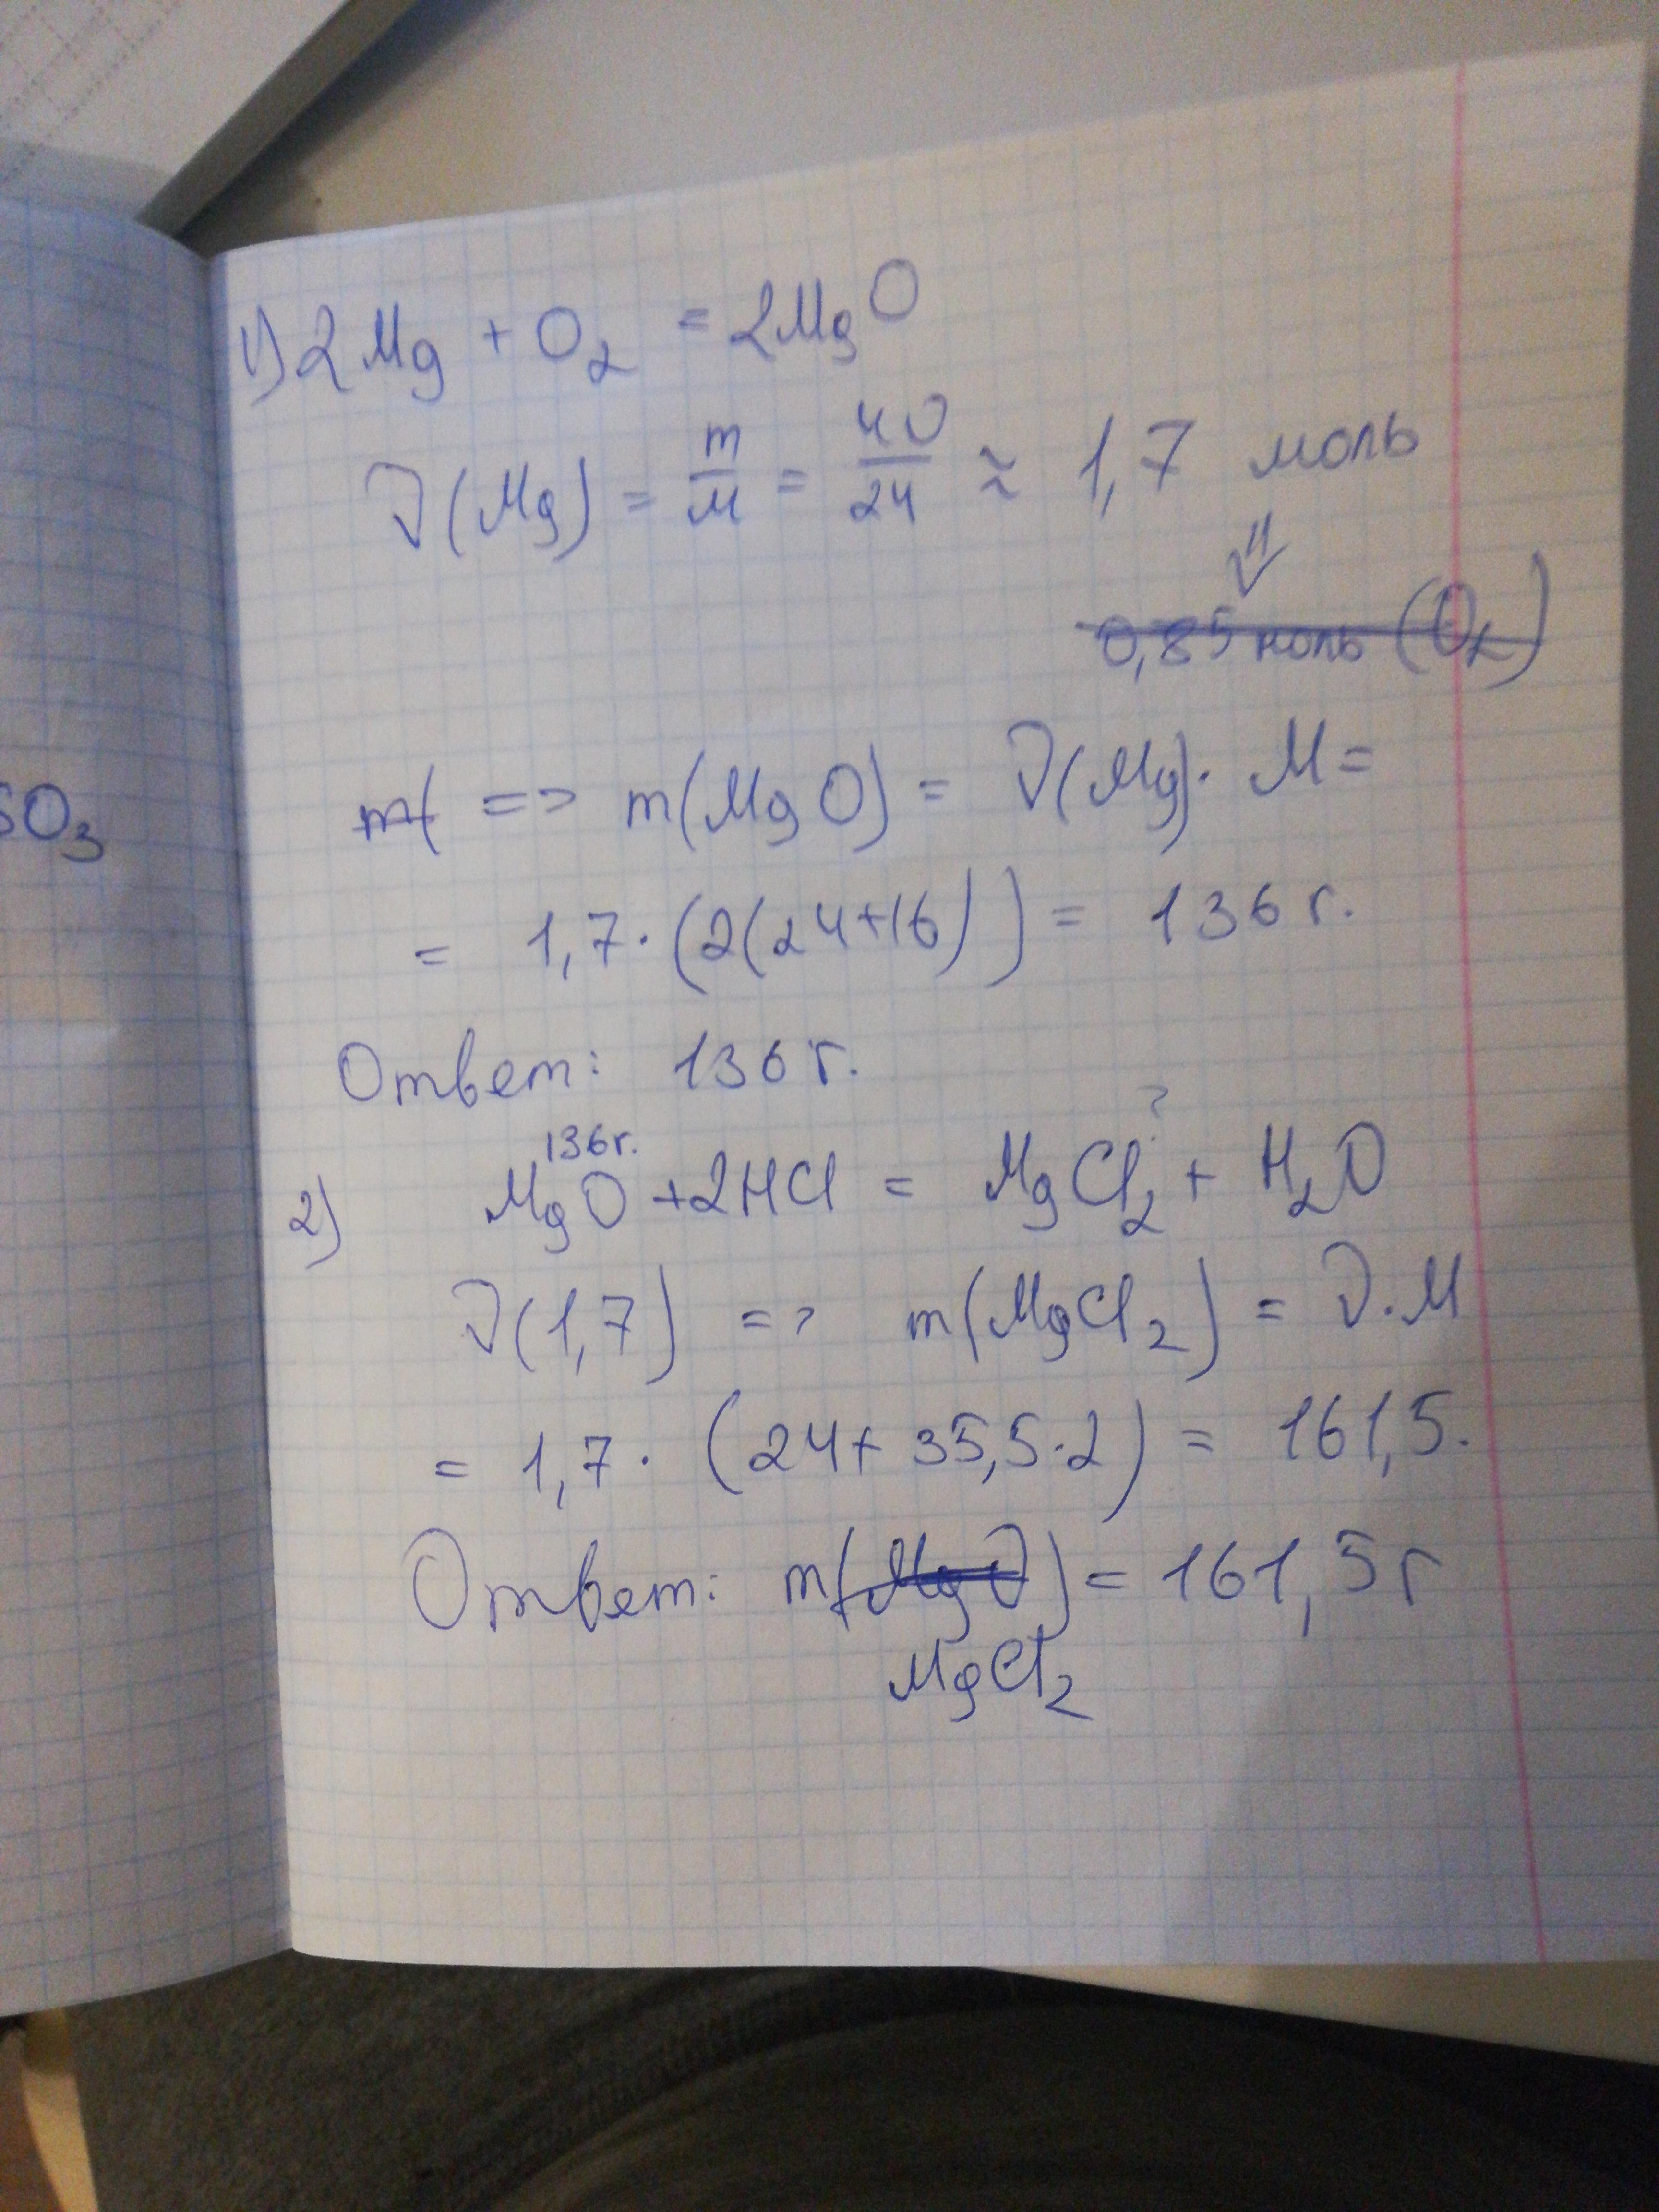 SO₃
1) 2Mg + O₂ = 2MgO
ν(Mg) = m/M = 40/24 ≈ 1,7 моль
⇓
0,85 моль (O₂)
m( => m(MgO) = ν(Mg) · M =
= 1,7 · (2(24+16)) = 136 г.
Ответ: 136 г.
136г. ?
2) MgO + 2HCl = MgCl₂ + H₂O
ν(1,7) => m(MgCl₂) = ν · M
= 1,7 · (24 + 35,5 · 2) = 161,5.
Ответ: m(MgO) = 161,5 г
MgCl₂